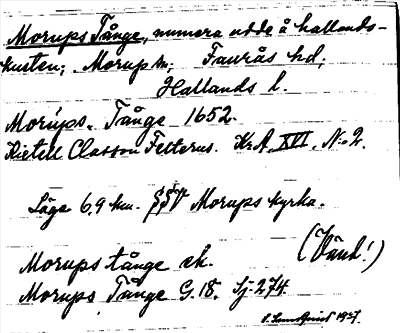 Morups Tånge, numera udde å hallands-
kusten; Morup sn; Faurås hd;
Hallands l.
Morups. Tånge 1652.
Kietell Classon Felterus. KrA. XVI. No 2.
Läge 6,9 km. Morups kyrka.
(Vänd!)
Morups tånge ek.
Morups Tånge G. 18. Sj. 274.